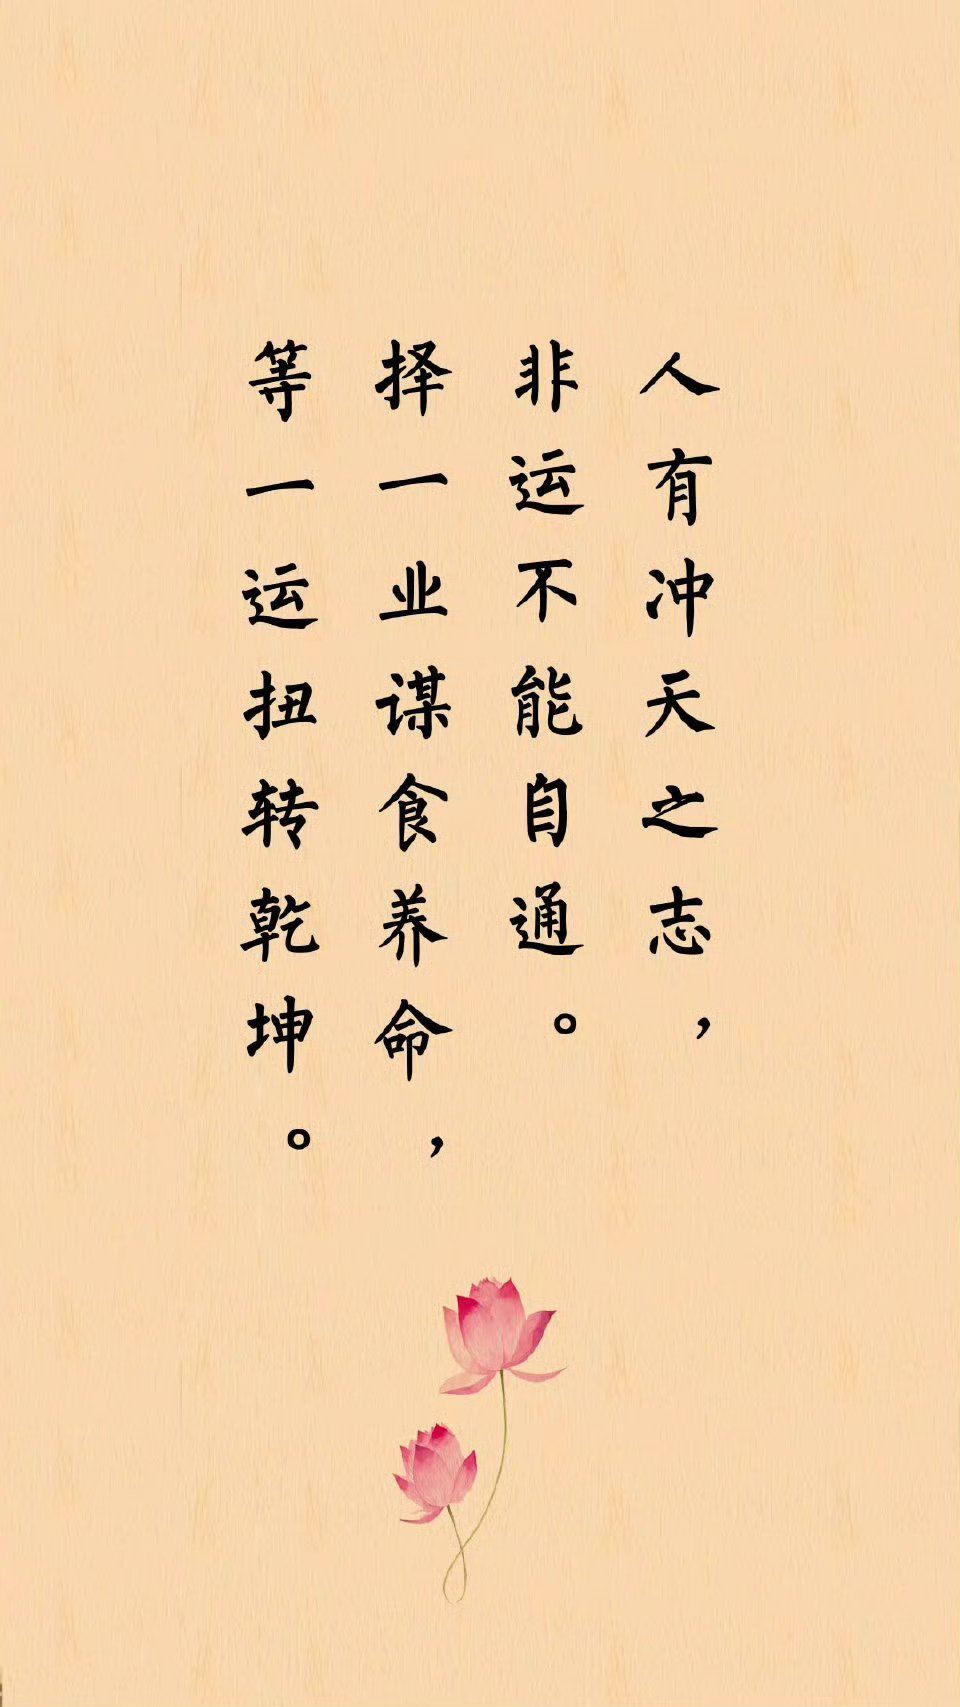 人有冲天之志，
非运不能自通。
择一业谋食养命，
等一运扭转乾坤。